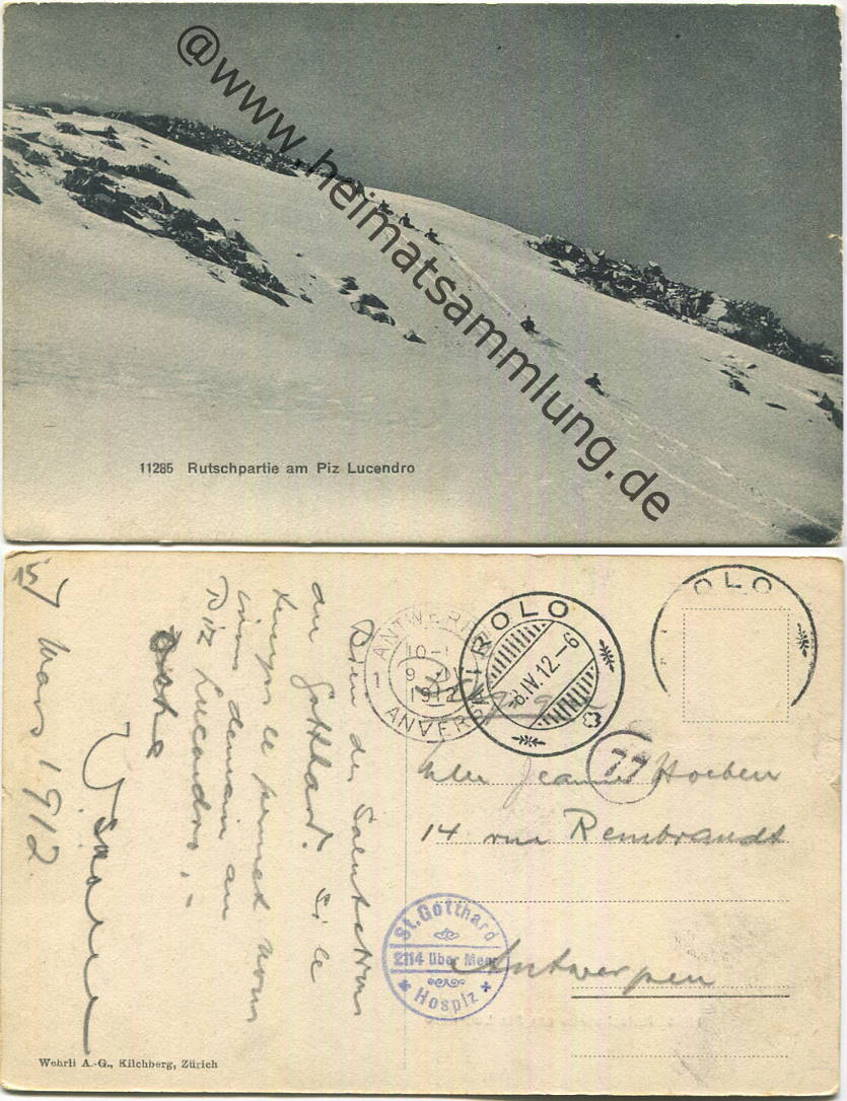 @www.heimatsammlung.de
11285 Rutschpartie am Piz Lucendro
15
Mars 1912
Bien des Salutations
du Gotthard. Si le
temps le permet nous
irons demain au
Piz Lucendro.-
ANTWERPEN
10-
9 IV
1912
1
ANVERS
AIROLO
8.IV.12.-6
OLO
77
Mlle Jeanne Hoeben
14 rue Rembrandt
Antwerpen
St. Gotthard
2114 über Meer
Hospiz
Wehrli A.-G., Kilchberg, Zürich